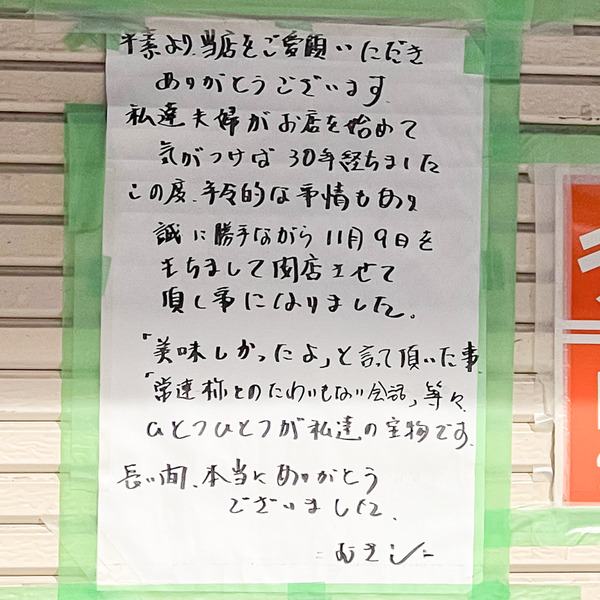 平素より当店をご愛顧いただき
ありがとうございます
私達夫婦がお店を始めて
気がつけば30年経ちました
この度、年令的な事情もあり
誠に勝手ながら11月9日を
もちまして閉店させて
頂く事になりました。
「美味しかったよ」と言って頂いた事
「常連様とのたわいもない会話」等々
ひとつひとつが私達の宝物です
長い間、本当にありがとう
ございました、